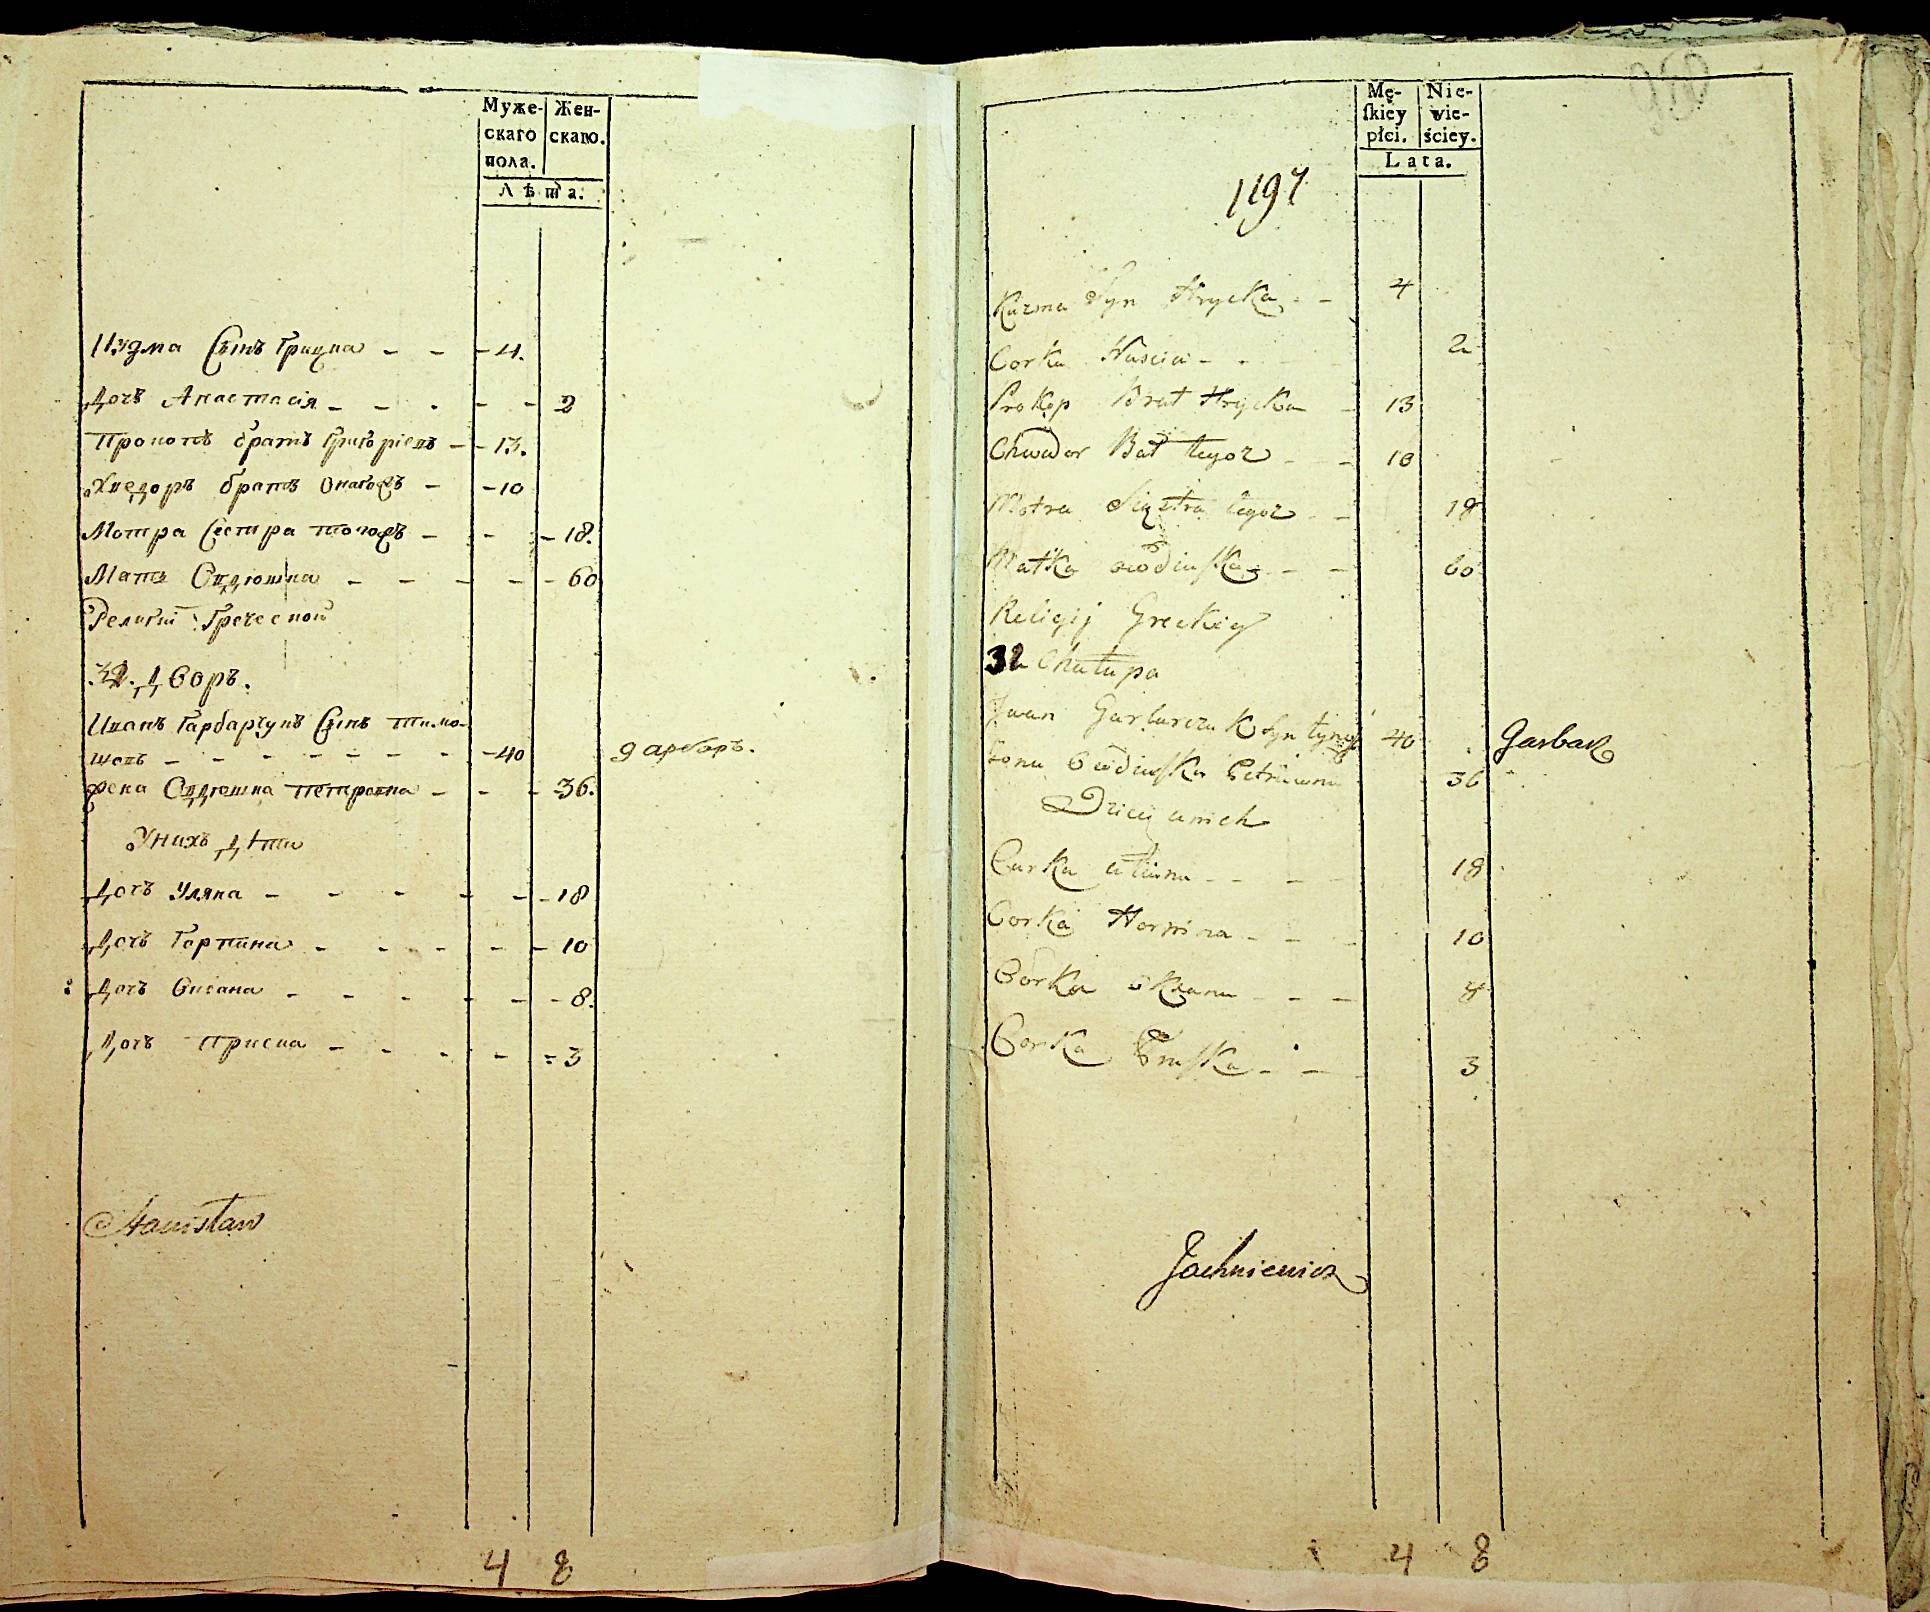 Муже-
скаго
пола.
Жен-
скаго.
Лѣта.
Кузма Сынъ Грицка - - - 4.
Дочъ Анастасія - - - - - 2
Прокопъ братъ Григоріевъ - - 13.
Хведоръ братъ - - 10
Мотра Сестра тогожъ - - - 18.
Мать Вдовѧ - - - - - 60
Религіи Греческой
32. Дворъ.
Иванъ Гарбарчукъ Сынъ Тимо-
- - - - - - - 40 гарбаръ.
жена Петровна - - - 36.
Унихъ Дѣти
Дочъ Уляна - - - - - - 18
Дочъ Горпина - - - - - - 10
Дочъ Оксана - - - - - - 8.
Дочъ Приска - - - - = 3
Stanisław
4 8
Mę-
ſkiey
płci.
Nie-
wie-
ściey.
Lata.
1197
Kuzma Syn Hrycka - - 4
Corka Nascia - - 2
Prokop Brat Hrycka - 13
Chwedor Bat tegoz - - 10
Motra Siestra tegoz - - 18
Matka - - 60
Religij Greckiey
32 Chałupa
Jwan Garbarczuk Syn 40 Garbarz
Zona 36
Dzieci unich
Curka Uliana - - - 18
Corka Horpina - - - 10
Corka Oksana - - - 8
Corka Pruſka - - 3
Jachniewicz
4 8